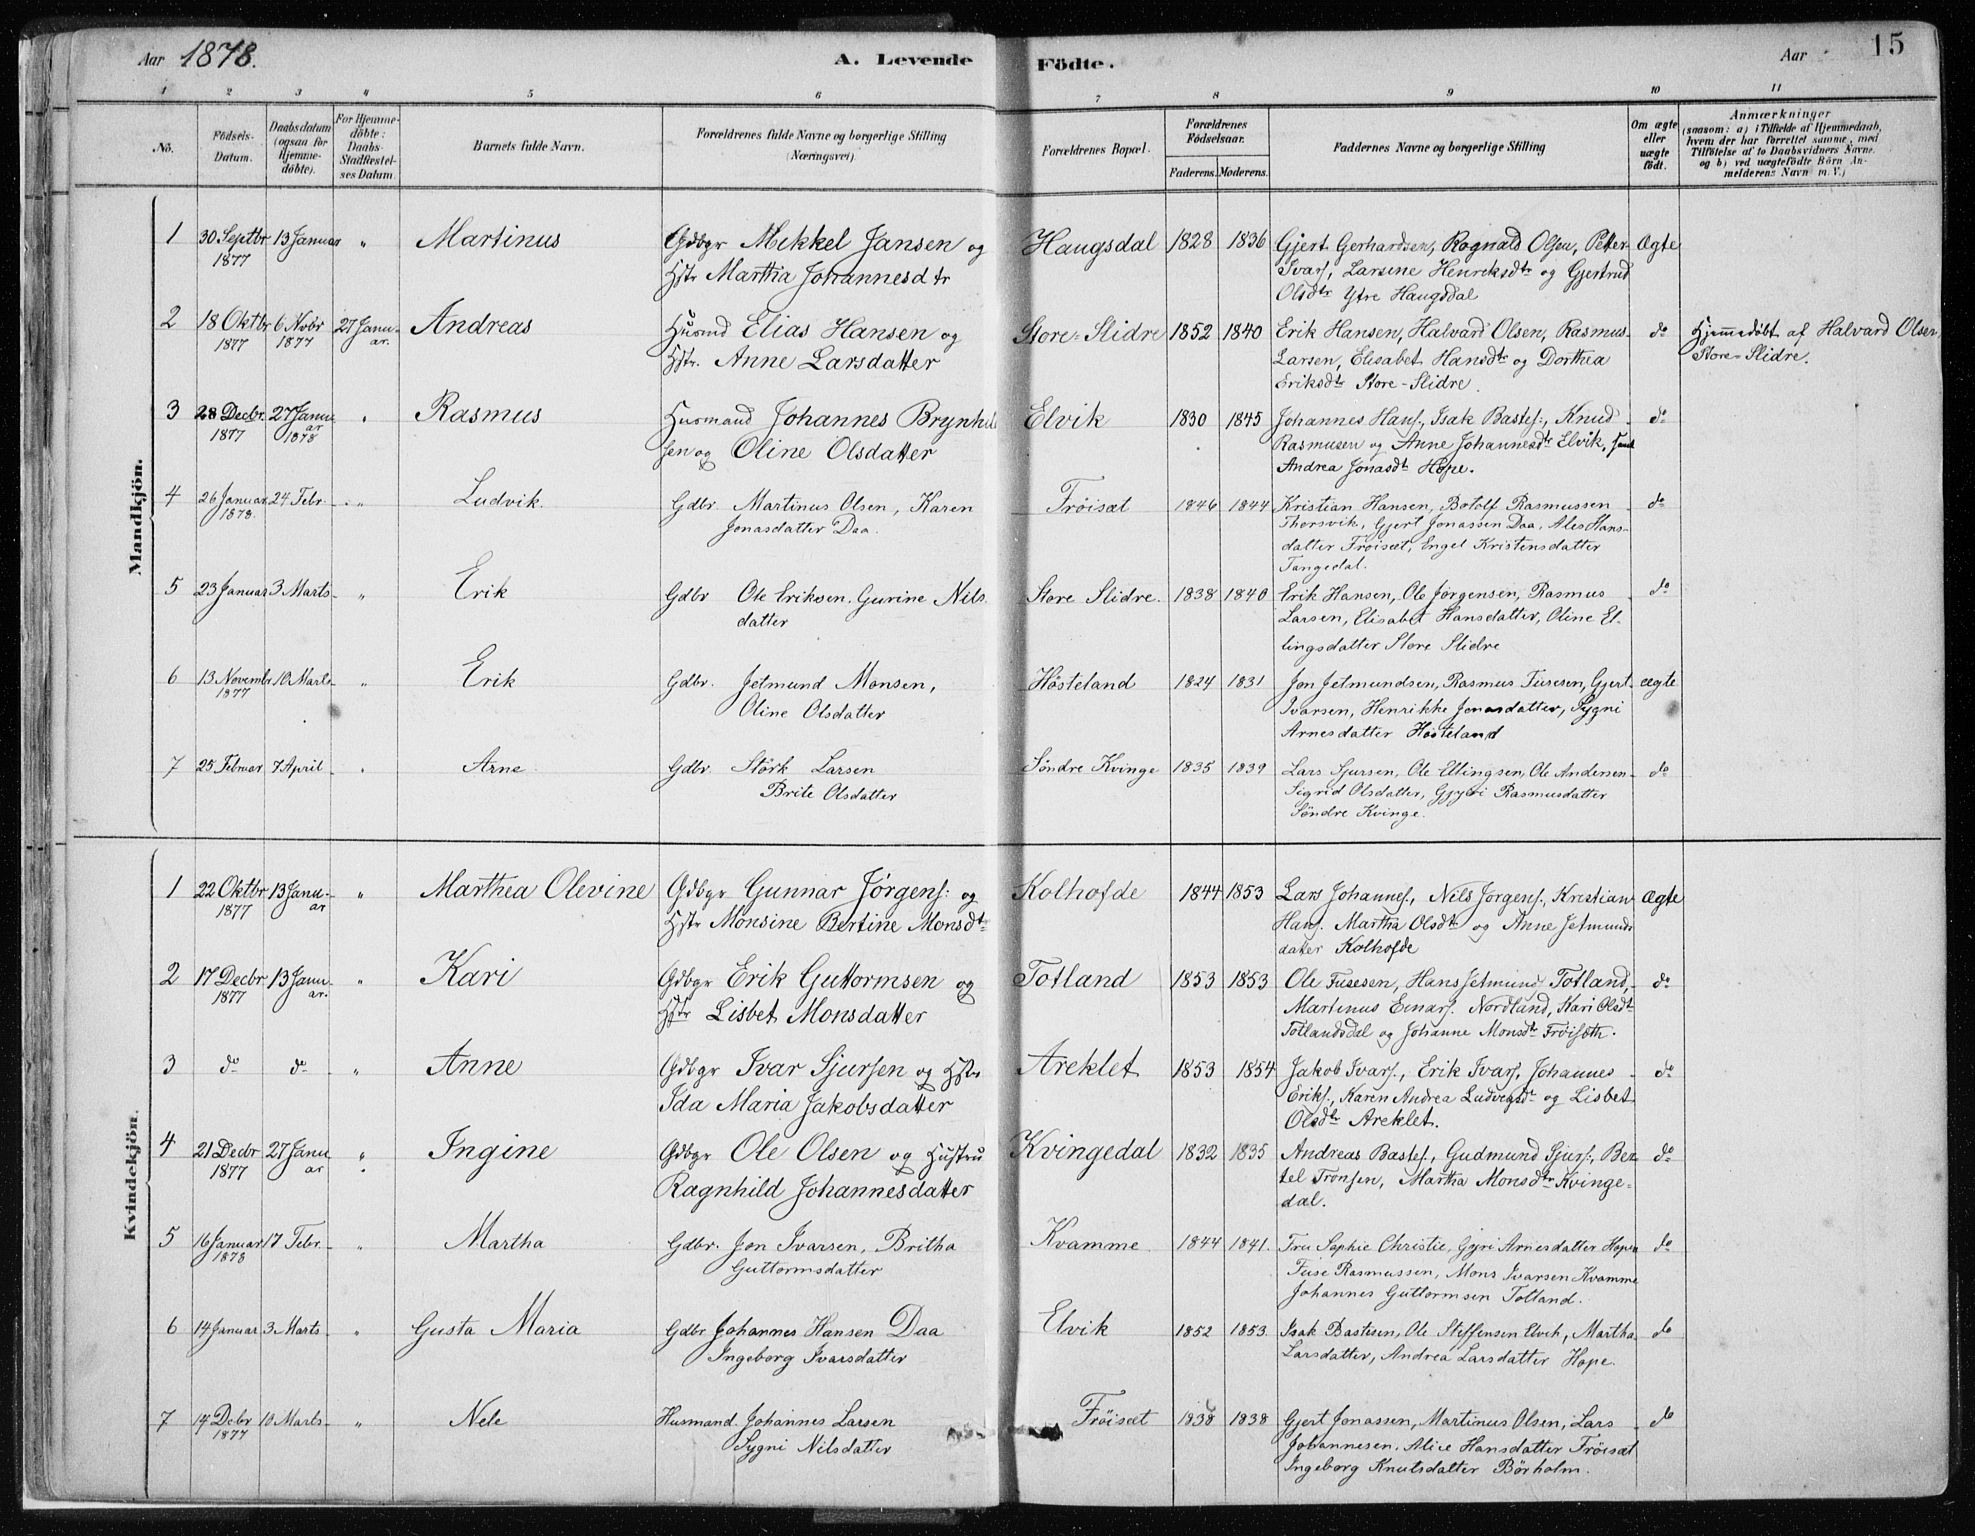 Aar 1878. A. Levende Födte. Aar 15
1 2 3 4 5 6 7 8 9 10 11
No. Födsels-Datum. Daabsdatum (ogsaa for Hjemmedöbte). For Hjemmedöbte: Daabs-Stadfæstelses Datum. Barnets fulde Navn. Forældrenes fulde Navne og borgerlige Stilling (Næringsvei). Forældrenes Bopæl. Forældrenes Fødselsaar. Faderens. Moderens. Faddernes Navne og borgerlige Stilling Om ægte eller uægte födt. Anmærkninger (saasom: a) i Tilfælde af Hjemmedaab, hvem der har forrettet samme, med Tilföielse af to Daabsvidners Navne, og b) ved uægtefödte Börn Anmelderens Navn m. V.)
Mandkjön.
1 30 Septbr 13 Januar " Martinus Gdbgr Mekkel Jansen og Haugsdal 1828 1836 Gjert Gerhardsen, Rognald Olsen, Petter Ægte
1877 Hstr Martha Johannesdtr Ivars, Larsine Henriksdtr og Gjertrud
Olsdtr Ytre Haugsdal
2 18 Oktbr 6 Novbr 27 Janu- Andreas Husmd Elias Hansen og Store-Slidre 1852 1840 Erik Hansen, Halvard Olsen, Rasmus do Hjemmedøbt af Halvard Olsen
1877 1877 ar. Hstr. Anne Larsdatter Larsen, Elisabet Hansdtr og Dorthea Store-Slidre.
Eriksdtr Store-Slidre.
3 28 Decbr. 27 Janu " Rasmus Husmand Johannes Brynhil Elvik 1830 1845 Johannes Hans., Isak Bastes., Knud do
1877 ar 1878 sen og Oline Olsdatter Rasmusen og Anne Johannesdtr Elvik, samt
Andrea Jonasdt Hope.
4 26 Januar 24 Febr. " Ludvik. Gdbr. Martinus Olsen, Karen Frøisæt 1846 1844 Kristian Hansen, Botolf Rasmussen do
1878. Jonasdatter Daa. Thorsvik, Gjert Jonassen Daa, Ales Hans-
datter Frøisæt, Engel Kristensdatter
Tangedal.
5 23 Januar 3 Marts " Erik Gdbr Ole Eriksen. Gurine Nils Store Slidre. 1838 1840 Erik Hansen, Ole Jørgensen, Rasmus do
datter Larsen, Elisabet Hansdatter, Oline El-
lingsdatter Store Slidre
6 13 Novembr 10 Marts " Erik Gdbr. Jetmund Monsen, Høsteland 1824 1831 Jon Jetmundsen, Rasmus Fusesen, Gjert ægte
1877 Oline Olsdatter Ivarsen, Henrikke Jonasdatter, Sygni
Arnesdatter Høsteland
7 25 Februar 7 April " Arne Gdbr. Størk Larsen Søndre Kvinge 1835 1839 Lars Sjursen, Ole Ellingsen, Ole Andersen do
Brite Olsdatter Sigrid Olsdatter, Gjyri Rasmusdatter
Søndre Kvinge.
Kvindekjön.
1 22 Oktbr 13 Janu- " Marthea Olevine Gdbgr Gunnar Jørgens: og Kolhofde 1844 1853 Lars Johannes., Nils Jørgens., Kristian Ægte
1877 ar Hstr Monsine Bertine Monsdtr Hans. Martha Olsdtr og Anne Jetmunds
datter Kolhofde
2 17 Decbr 13 Janu " Kari Gdbgr Erik Guttormsen og Totland 1853 1853 Ole Fusesen, Hans Jetmund Totland, do
1877 ar. Hstr Lisbet Monsdatter Martinus Einars. Nordland, Kari Olsdt
Totlandsdal og Johanne Monsdtr Frøisæth.
3 do do " Anne Gdbgr Ivar Sjursen og Hstr Areklet 1853 1854 Jakob Ivars., Erik Ivars, Johannes do
Ida Maria Jakobsdatter Eriks., Karen Andrea Ludvigsdr og Lisbet
Olsdtr Areklet.
4 21 Decbr 27 Janu " Ingine Gdbgr Ole Olsen og Hustru Kvingedal 1832 1835 Andreas Bastes., Gudmund Sjurs., Ber- do
1877 ar Ragnhild Johannesdatter tel Tronsen, Martha Monsdtr Kvinge-
dal.
5 16 Januar 17 Febr. " Martha Gdbr. Jon Ivarsen, Britha Kvamme 1844 1841. Fru Sophie Christie, Gyri Arnesdatter Hope do
1878 Guttormsdatter Fuse Rasmussen, Mons Ivarsen Kvamme
Johannes Guttormsen Totland.
6 14 Januar 3 Marts " Gusta Maria Gdbr Johannes Hansen Daa Elvik 1852 1853 Isak Bastesen, Ole Steffensen Elvik, Martha do
Ingeborg Ivarsdatter Larsdatter, Andrea Larsdatter Hope.
7 14 Decbr 10 Marts " Nele Husmand Johannes Larsen Frøisæt 1838 1838 Gjert Jonassen, Martinus Olsen, Lars do
1877 Sygni Nilsdatter Johannesen. Alice Hansdatter Frøisæt
Ingeborg Knutsdatter Børholm.